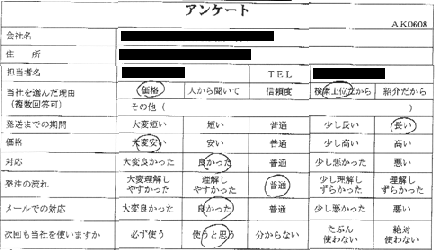 アンケート
AK0608
会社名
住 所
担当者名 TEL
当社を選んだ理由
(複数回答可)
価格 人から聞いて 信頼度 検索上位だから 紹介だから
その他( )
発送までの期間 大変短い 短い 普通 少し長い 長い
価格 大変安い 安い 普通 少し高い 高い
対応 大変良かった 良かった 普通 少し悪かった 悪い
発注の流れ 大変理解し
やすかった 理解し
やすかった 普通 少し理解し
ずらかった 理解し
ずらかった
メールでの対応 大変良かった 良かった 普通 少し悪かった 悪い
次回も当社を使いますか 必ず使う 使うと思う 分からない たぶん
使わない 絶対
使わない